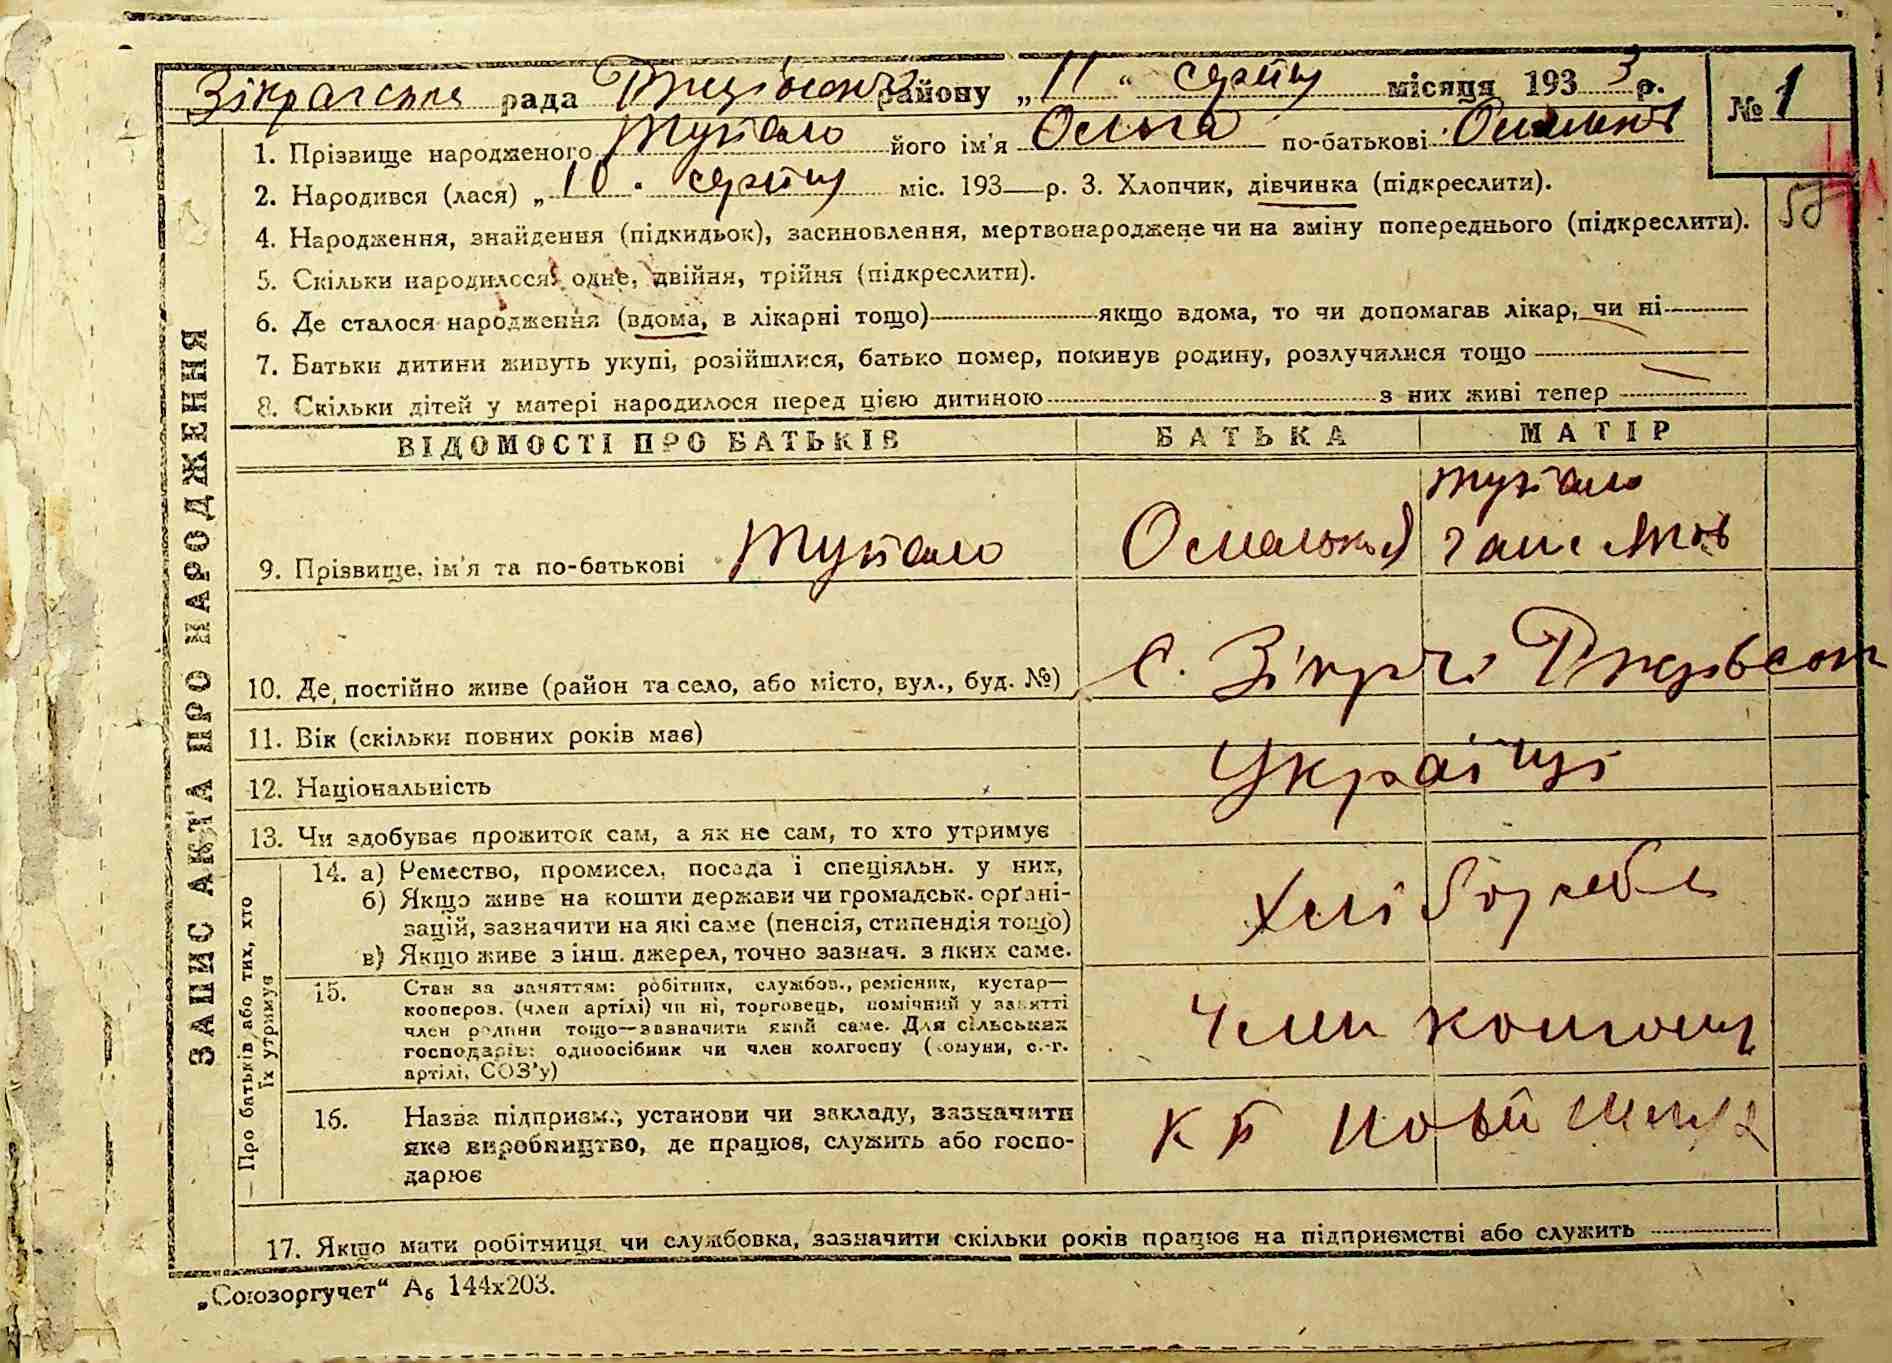 Зікрачська рада Ржищівськ району „11“ серпня місяця 1933 р.
№ 1
1. Прізвище народженого Тупало його ім'я Ольга по-батькові
2. Народився (лася) „10. серпня міс. 193—р. 3. Хлопчик, дівчинка (підкреслити).
58
4. Народження, знайдення (підкидьок), засиновлення, мертвонароджене чи на зміну попереднього (підкреслити).
5. Скільки народилося: одне, двійня, трійня (підкреслити).
6. Де сталося народження (вдома, в лікарні тощо) якщо вдома, то чи допомагав лікар, чи ні
7. Батьки дитини живуть укупі, розійшлися, батько помер, покинув родину, розлучилися тощо
8. Скільки дітей у матері народилося перед цією дитиною з них живі тепер
ЗАПИС АКТА ПРО НАРОДЖЕННЯ
ВІДОМОСТІ ПРО БАТЬКІВ БАТЬКА МАТІР
Тупало
9. Прізвище, ім'я та по-батькові Тупало
10. Де постійно живе (район та село, або місто, вул., буд. №) с. Зікрачі Ржищівськ
11. Вік (скільки повних років має)
12. Національність Українці
13. Чи здобуває прожиток сам, а як не сам, то хто утримує
Про батьків або тих, хто
їх утримує
14. а) Ремество, промисел, посада і спеціяльн. у них,
б) Якщо живе на кошти держави чи громадськ. орґані-
зацій, зазначити на які саме (пенсія, стипендія тощо)
в) Якщо живе з інш. джерел, точно зазнач. з яких саме.
Хлібороби
15. Стан за заняттям: робітник, службов., ремісник, кустар—
кооперов. (член артілі) чи ні, торговець, помічний у занятті
член родини тощо—зазначити який саме. Для сільських
господарів: одноосібник чи член колгоспу (комуни, с.-г.
артілі, СОЗ'у)
Член колгоспу
16. Назва підприєм., установи чи закладу, зазначити
яке виробництво, де працює, служить або госпо-
дарює
Новий Шлях
17. Якщо мати робітниця чи службовка, зазначити скільки років працює на підприємстві або служить
„Союзоргучет“ А₆ 144х203.